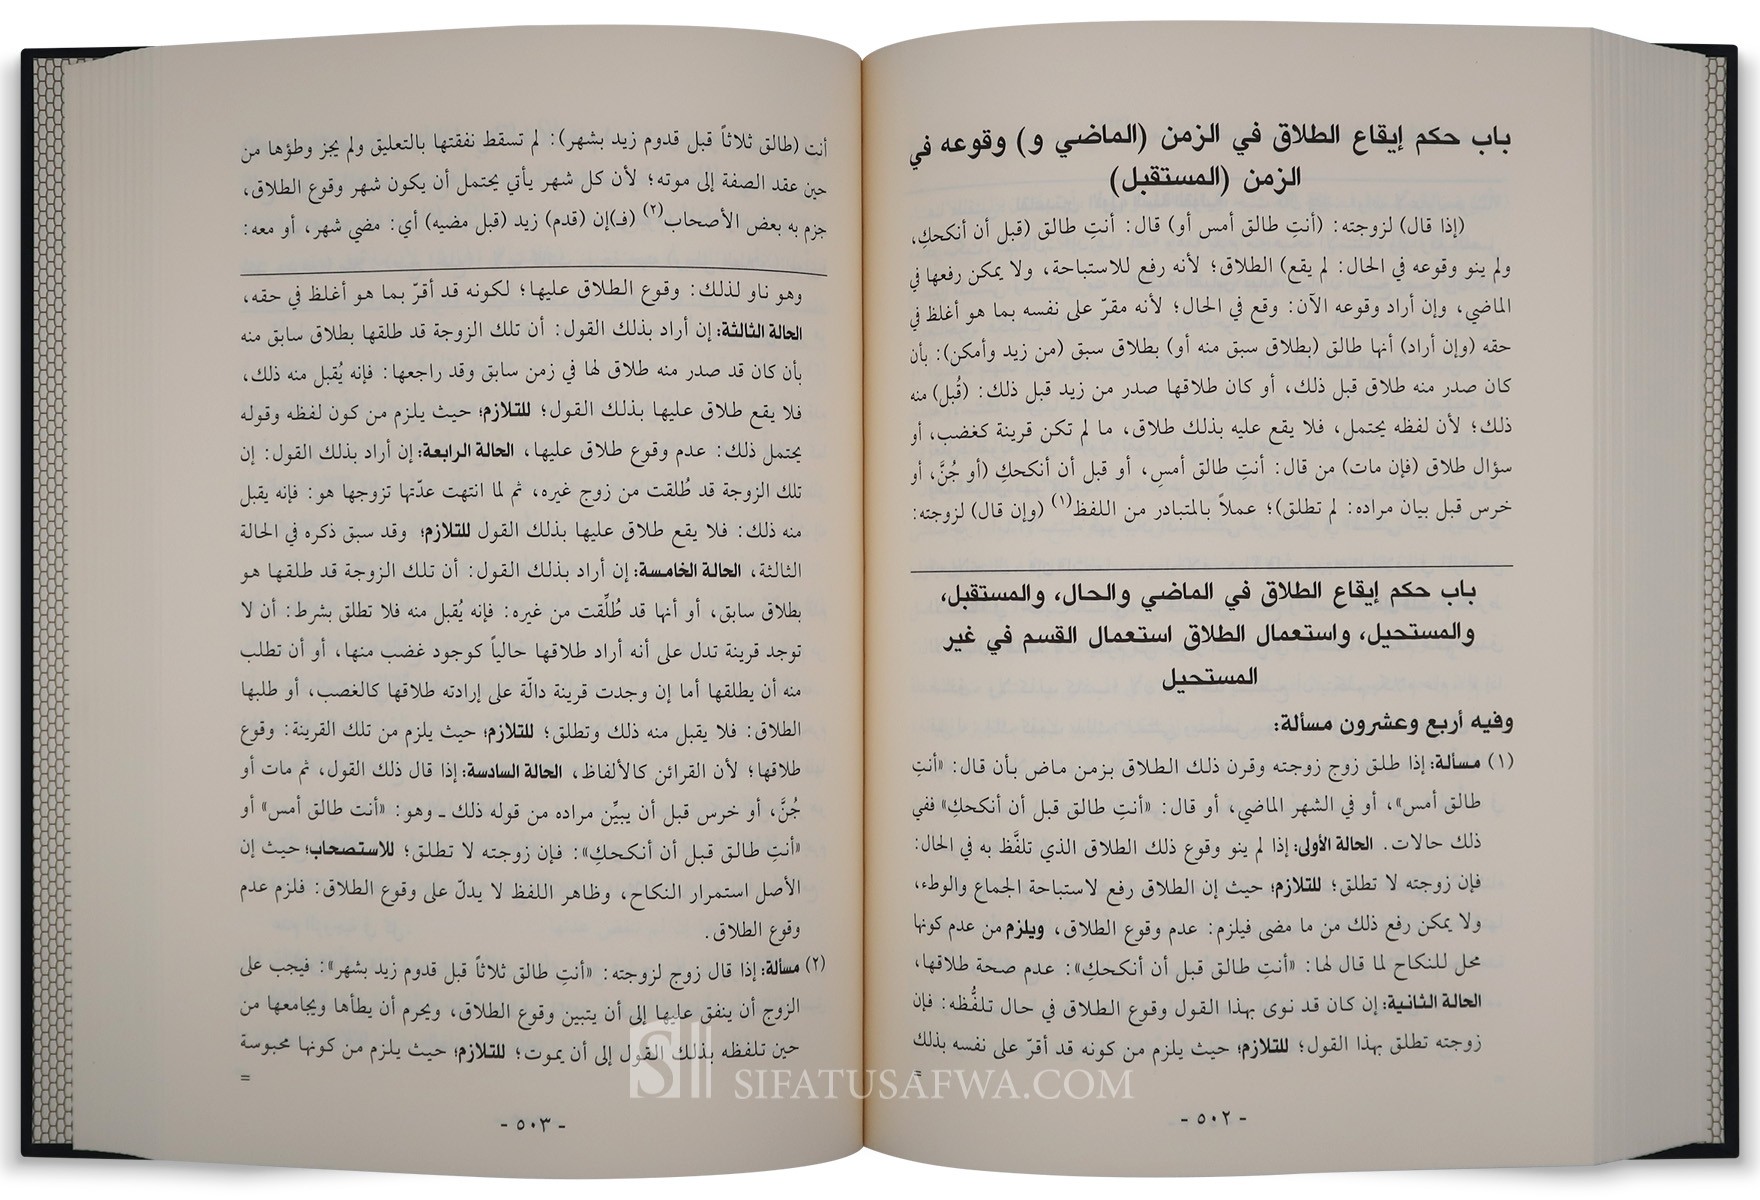 باب حكم إيقاع الطلاق في الزمن (الماضي و) وقوعه في
الزمن (المستقبل)
(إذا قال) لزوجته: (أنتِ طالق أمس أو) قال: أنتِ طالق (قبل أن أنكحكِ،
ولم ينو وقوعه في الحال: لم يقع) الطلاق؛ لأنه رفع للاستباحة، ولا يمكن رفعها في
الماضي، وإن أراد وقوعه الآن: وقع في الحال؛ لأنه مقرّ على نفسه بما هو أغلظ في
حقه (وإن أراد) أنها طالق (بطلاق سبق منه أو) بطلاق سبق (من زيد وأمكن): بأن
كان صدر منه طلاق قبل ذلك، أو كان طلاقها صدر من زيد قبل ذلك: (قُبل) منه
ذلك؛ لأن لفظه يحتمل، فلا يقع عليه بذلك طلاق، ما لم تكن قرينة كغضب، أو
سؤال طلاق (فإن مات) من قال: أنتِ طالق أمسِ، أو قبل أن أنكحكِ (أو جُنَّ، أو
خرس قبل بيان مراده: لم تطلق)؛ عملاً بالمتبادر من اللفظ(١) (وإن قال) لزوجته:
باب حكم إيقاع الطلاق في الماضي والحال، والمستقبل،
والمستحيل، واستعمال الطلاق استعمال القسم في غير
المستحيل
وفيه أربع وعشرون مسألة:
(١) مسألة: إذا طلق زوج زوجته وقرن ذلك الطلاق بزمن ماض بأن قال: «أنتِ
طالق أمس»، أو في الشهر الماضي، أو قال: «أنتِ طالق قبل أن أنكحكِ» ففي
ذلك حالات. الحالة الأولى: إذا لم ينو وقوع ذلك الطلاق الذي تلفَّظ به في الحال:
فإن زوجته لا تطلق؛ للتلازم؛ حيث إن الطلاق رفع لاستباحة الجماع والوطء،
ولا يمكن رفع ذلك من ما مضى فيلزم: عدم وقوع الطلاق، ويلزم من عدم كونها
محل للنكاح لما قال لها: «أنتِ طالق قبل أن أنكحكِ»: عدم صحة طلاقها،
الحالة الثانية: إن كان قد نوى بهذا القول وقوع الطلاق في حال تلفُّظه: فإن
زوجته تطلق بهذا القول؛ للتلازم؛ حيث يلزم من كونه قد أقرّ على نفسه بذلك
=
- ٥٠٢ -
أنت (طالق ثلاثاً قبل قدوم زيد بشهر): لم تسقط نفقتها بالتعليق ولم يجز وطؤها من
حين عقد الصفة إلى موته؛ لأن كل شهر يأتي يحتمل أن يكون شهر وقوع الطلاق،
جزم به بعض الأصحاب(٢) (فـ)إن (قدم) زيد (قبل مضيه) أي: مضي شهر، أو معه:
وهو ناو لذلك: وقوع الطلاق عليها؛ لكونه قد أقرّ بما هو أغلظ في حقه،
الحالة الثالثة: إن أراد بذلك القول: أن تلك الزوجة قد طلقها بطلاق سابق منه
بأن كان قد صدر منه طلاق لها في زمن سابق وقد راجعها: فإنه يُقبل منه ذلك،
فلا يقع طلاق عليها بذلك القول؛ للتلازم؛ حيث يلزم من كون لفظه وقوله
يحتمل ذلك: عدم وقوع طلاق عليها، الحالة الرابعة: إن أراد بذلك القول: إن
تلك الزوجة قد طُلقت من زوج غيره، ثم لما انتهت عدّتها تزوجها هو: فإنه يقبل
منه ذلك: فلا يقع طلاق عليها بذلك القول للتلازم؛ وقد سبق ذكره في الحالة
الثالثة، الحالة الخامسة: إن أراد بذلك القول: أن تلك الزوجة قد طلقها هو
بطلاق سابق، أو أنها قد طُلِّقت من غيره: فإنه يُقبل منه فلا تطلق بشرط: أن لا
توجد قرينة تدل على أنه أراد طلاقها حالياً كوجود غضب منها، أو أن تطلب
منه أن يطلقها أما إن وجدت قرينة دالّة على إرادته طلاقها كالغضب، أو طلبها
الطلاق: فلا يقبل منه ذلك وتطلق؛ للتلازم؛ حيث يلزم من تلك القرينة: وقوع
طلاقها؛ لأن القرائن كالألفاظ، الحالة السادسة: إذا قال ذلك القول، ثم مات أو
جُنَّ، أو خرس قبل أن يبيِّن مراده من قوله ذلك ـ وهو: «أنت طالق أمس» أو
«أنتِ طالق قبل أن أنكحكِ»: فإن زوجته لا تطلق؛ للاستصحاب؛ حيث إن
الأصل استمرار النكاح، وظاهر اللفظ لا يدلّ على وقوع الطلاق: فلزم عدم
وقوع الطلاق.
(٢) مسألة: إذا قال زوج لزوجته: «أنتِ طالق ثلاثاً قبل قدوم زيد بشهر»: فيجب على
الزوج أن ينفق عليها إلى أن يتبين وقوع الطلاق، ويحرم أن يطأها ويجامعها من
حين تلفظه بذلك القول إلى أن يموت؛ للتلازم؛ حيث يلزم من كونها محبوسة
=
- ٥٠٣ -
SIFATUSAFWA.COM